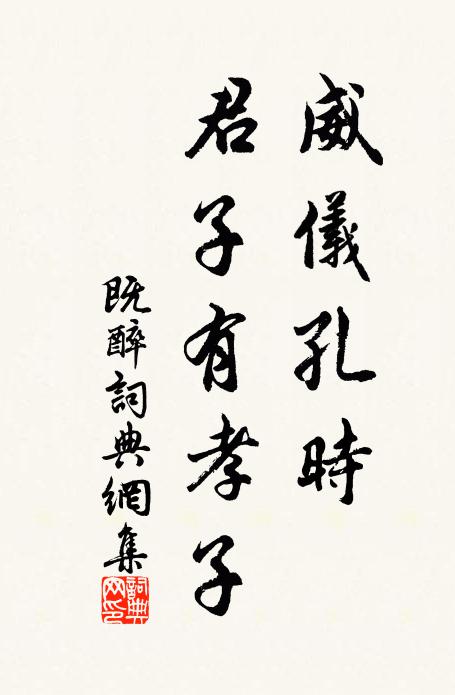 威儀孔時
君子有孝子
既醉詞典網集
詞典网印